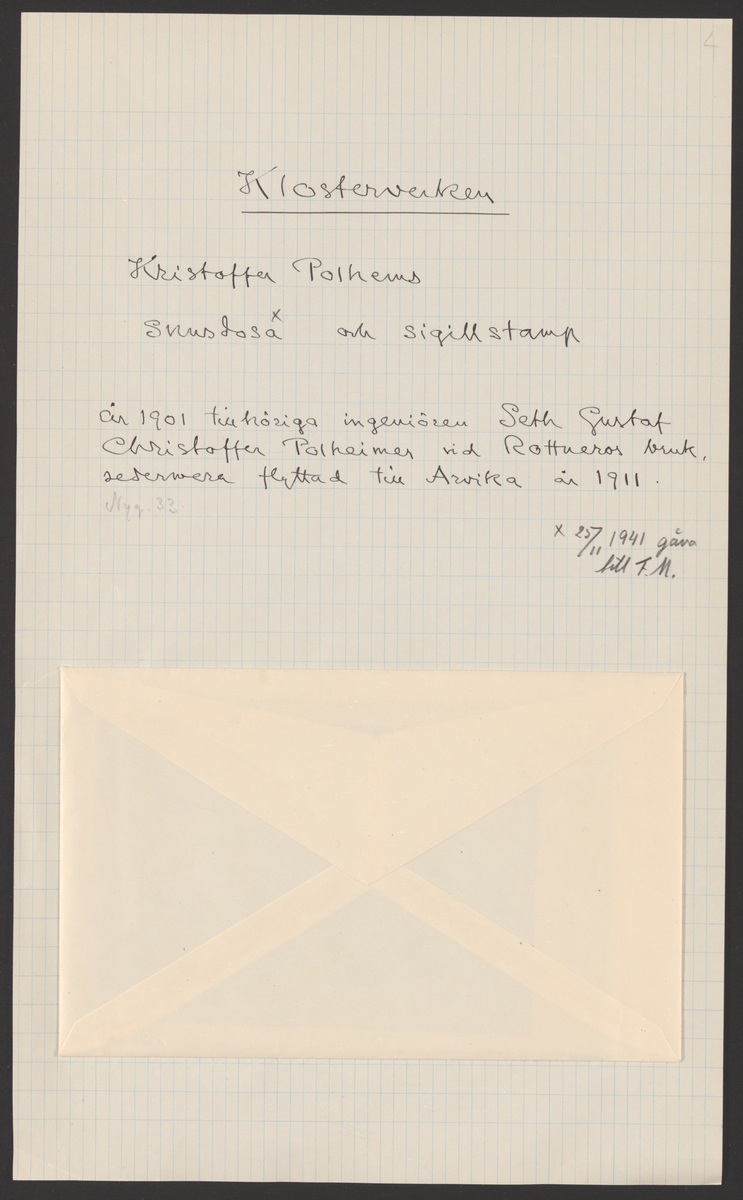 4
Klosterverken
Kristoffer Polhems
Snusdosa x och sigillstamp
år 1901 tillhöriga ingeniören Seth Gustaf
Christoffer Polheimer vid Rottneros bruk,
sedermera flyttad till Arvika år 1911.
Nyg. 33.
x 25/11 1941 gåva
till T.M.